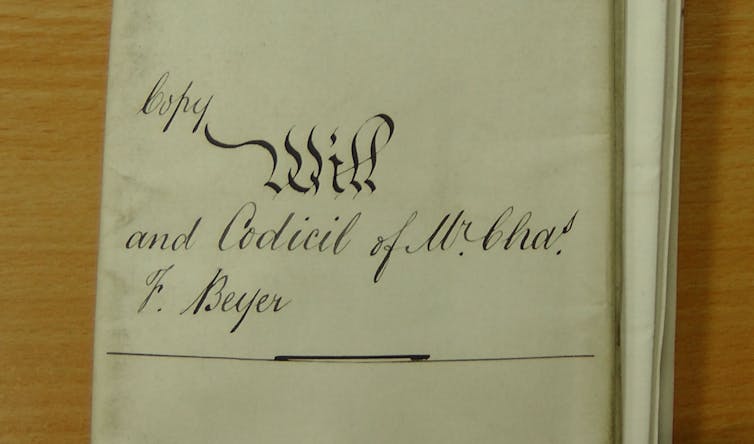 Copy
Will
and Codicil of Mr. Chas.
F. Beyer